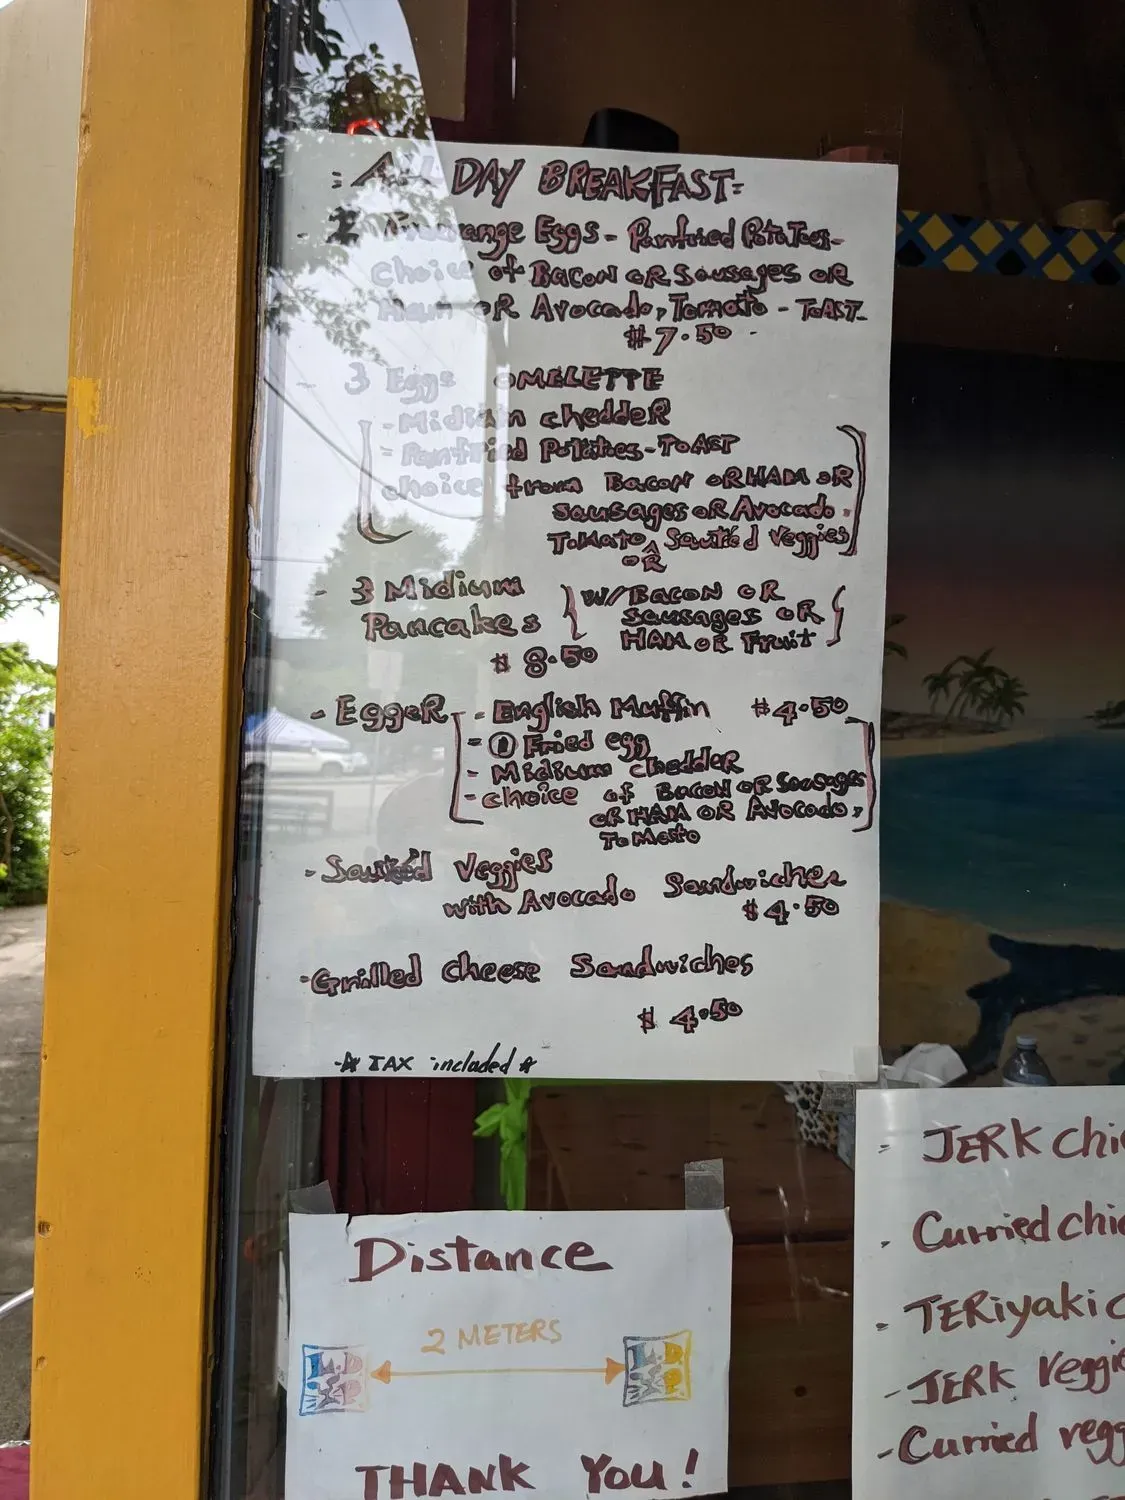 : ALL DAY BREAKFAST:
- 2 Freerange Eggs - Panfried Potatoes -
choice of Bacon OR Sausages OR
Ham OR Avocado, Tomato - TOAST -
$7.50
- 3 Eggs OMELETTE
- Midium chedder
- Panfried Potatoes - TOAST
choice from Bacon OR HAM OR
sausages OR Avocado,
Tomato OR Sautéed Veggies
- 3 Midium Pancakes
W/ BACON OR
Sausages OR
HAM OR Fruit
$8.50
- EggeR - English Muffin $4.50
- 1 Fried egg
- Midium chedder
- choice of Bacon OR Sausages
OR HAM OR Avocado,
Tomato
- Sautéd Veggies
with Avocado Sandwiches
$4.50
- Grilled cheese Sandwiches
$4.50
TAX included
Distance
2 METERS
THANK You!
- JERK Chi
- Curried chi
- TERiyaki c
- JERK Veggi
- Curried vegg